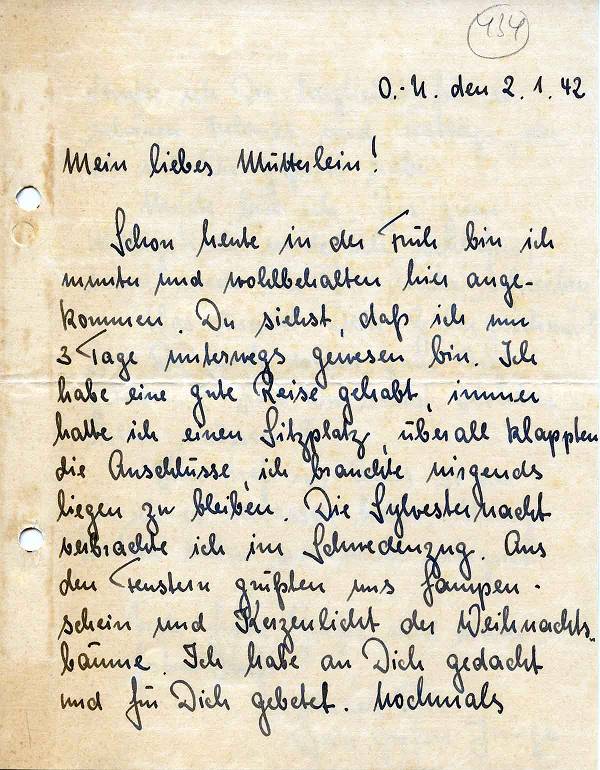 434
O.-U. den 2.1.42
Mein liebes Mütterlein!
Schon heute in der Früh bin ich
munter und wohlbehalten hier ange-
kommen. Du siehst, daß ich nur
3 Tage unterwegs gewesen bin. Ich
habe eine gute Reise gehabt, immer
hatte ich einen Sitzplatz, überall klappten
die Anschlüsse, ich brauchte nirgends
liegen zu bleiben. Die Sylvesternacht
verbrachte ich im Schwedenzug. Aus
den Fenstern grüßten uns Lampen-
schein und Kerzenlicht der Weihnachts-
bäume. Ich habe an Dich gedacht
und für Dich gebetet. Nochmals